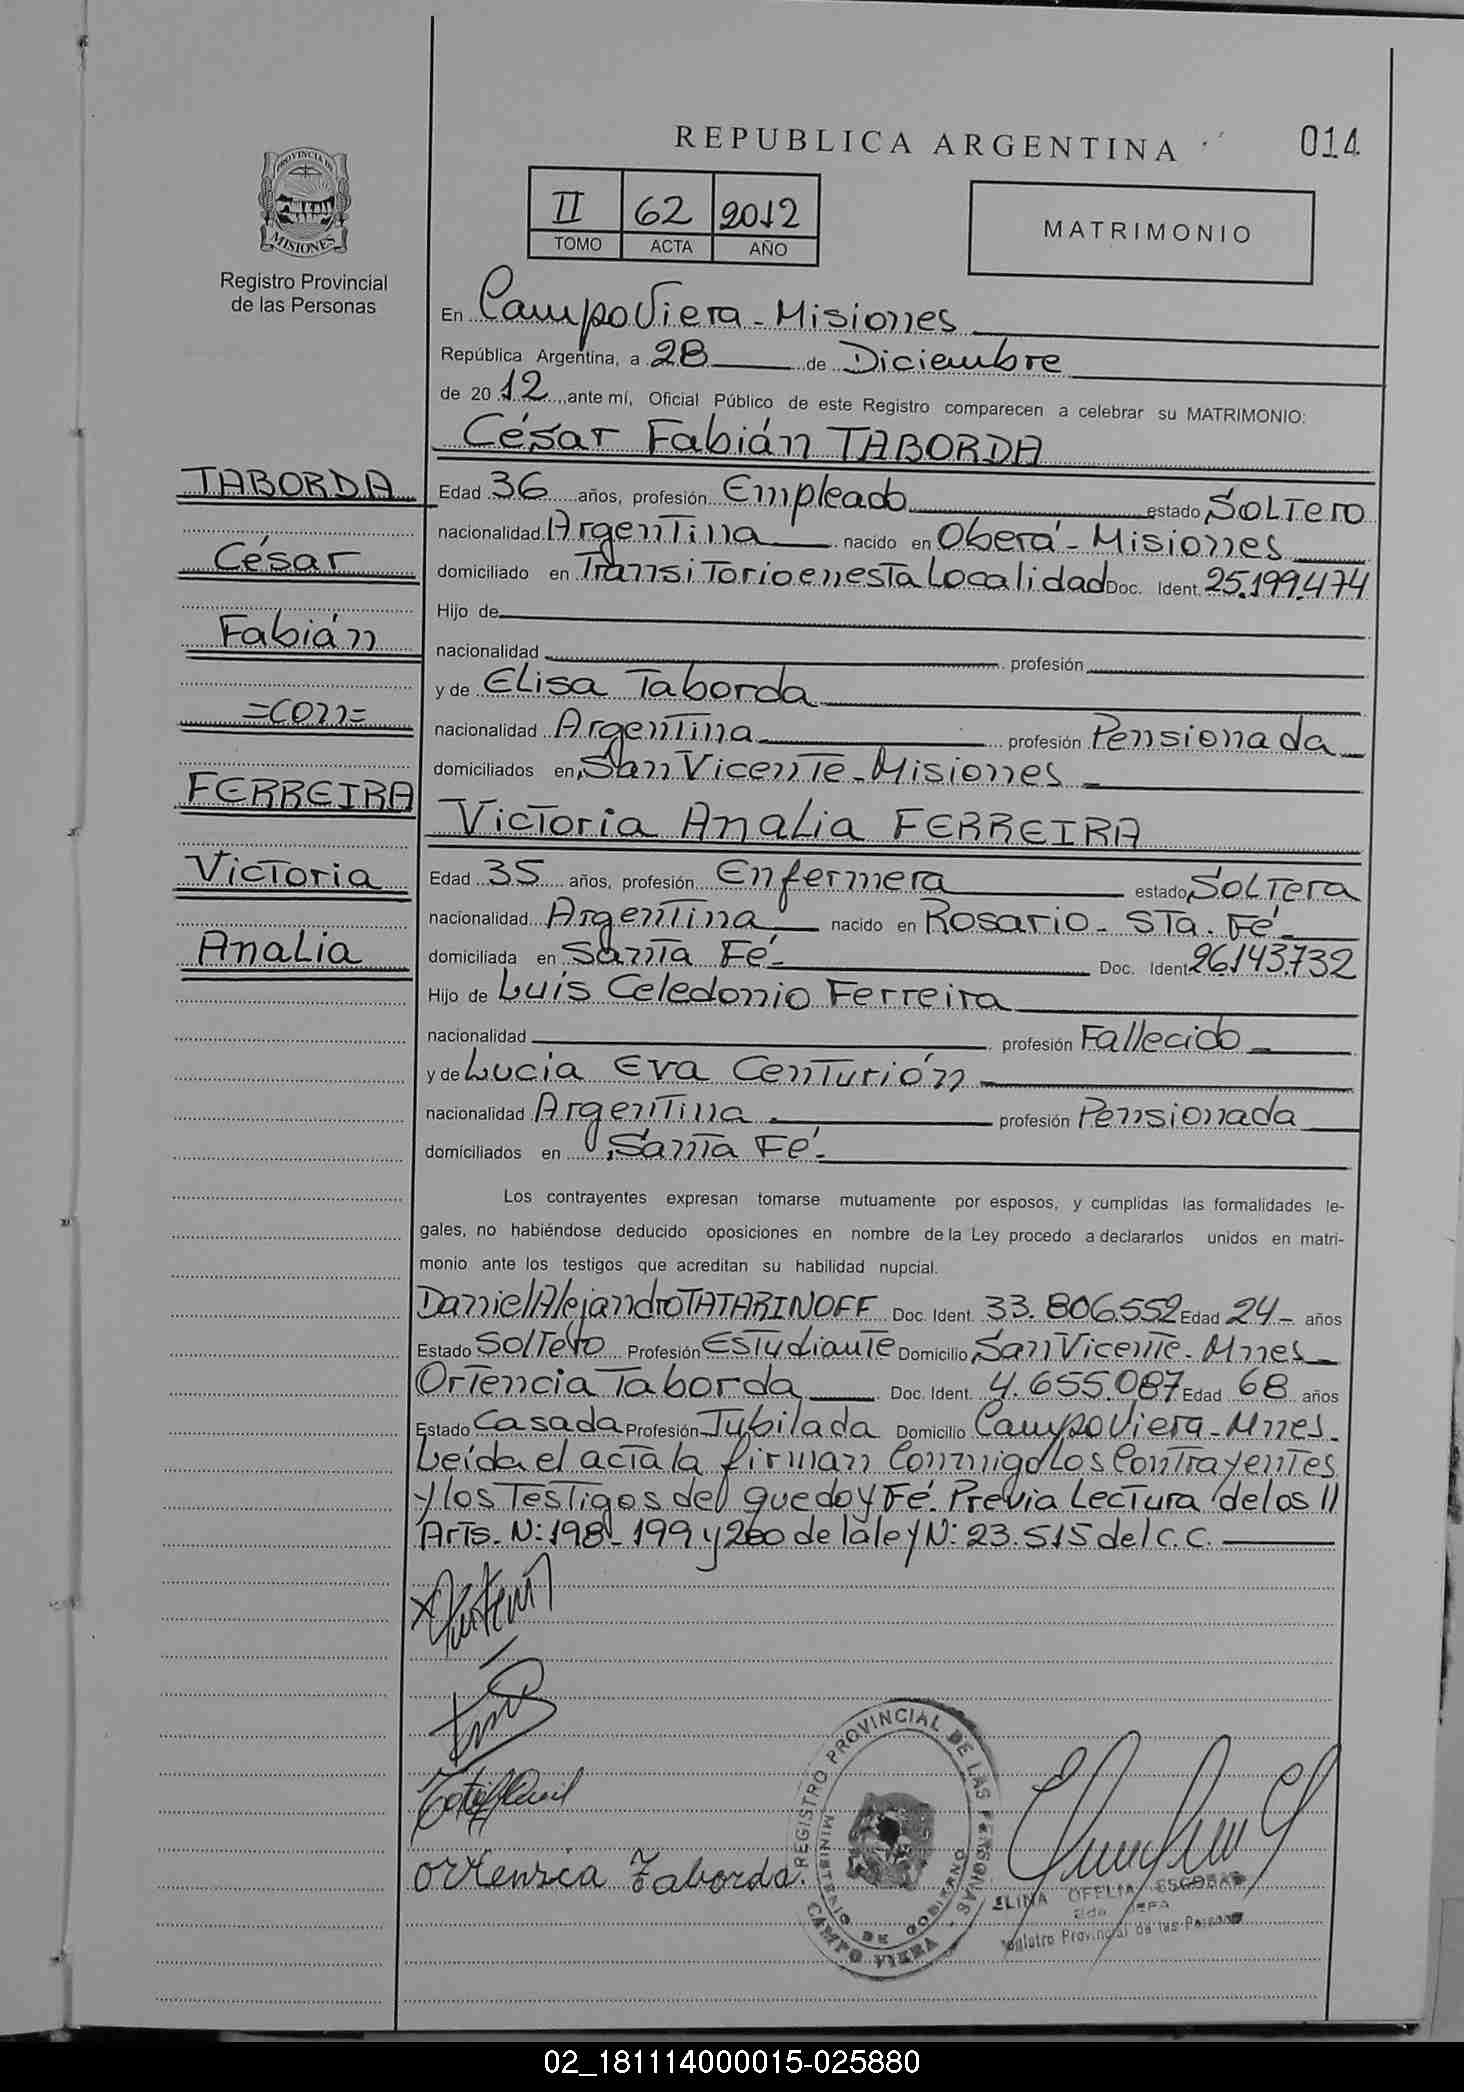 REPUBLICA ARGENTINA
014
PROVINCIA DE
MISIONES
Registro Provincial
de las Personas
II 62 2012
TOMO ACTA AÑO
MATRIMONIO
En Campo Viera - Misiones
República Argentina, a 28 de Diciembre
de 20 12 ante mí, Oficial Público de este Registro comparecen a celebrar su MATRIMONIO:
César Fabián TABORDA
TABORDA
César
Fabián
=con=
FERREIRA
Victoria
Analia
Edad 36 años, profesión Empleado estado Soltero
nacionalidad Argentina nacido en Oberá - Misiones
domiciliado en Transitorio en esta Localidad Doc. Ident. 25.199.474
Hijo de
nacionalidad profesión
y de Elisa Taborda
nacionalidad Argentina profesión Pensionada
domiciliados en San Vicente - Misiones
Victoria Analia FERREIRA
Edad 35 años, profesión Enfermera estado Soltera
nacionalidad Argentina nacido en Rosario - Sta. Fé-
domiciliada en Santa Fé- Doc. Ident 26.143.732
Hijo de Luis Celedonio Ferreira
nacionalidad profesión Fallecido
y de Lucia Eva Centurión
nacionalidad Argentina profesión Pensionada
domiciliados en Santa Fé-
Los contrayentes expresan tomarse mutuamente por esposos, y cumplidas las formalidades le-
gales, no habiéndose deducido oposiciones en nombre de la Ley procedo a declararlos unidos en matri-
monio ante los testigos que acreditan su habilidad nupcial.
Daniel Alejandro TATARINOFF Doc. Ident. 33.806.552 Edad 24- años
Estado Soltero Profesión Estudiante Domicilio San Vicente - Mnes
Ortencia Taborda Doc. Ident. 4.655.087 Edad 68 años
Estado Casada Profesión Jubilada Domicilio Campo Viera - Mnes.
Leída el acta la firman Conmigo Los Contrayentes
y los Testigos de que doy Fé. Previa Lectura de los //
Arts. N: 198 - 199 y 200 de la ley N: 23.515 del C.C.
ortensia Taborda.
REGISTRO PROVINCIAL DE LAS PERSONAS -
MINISTERIO DE GOBIERNO
CAMPO VIERA
ELINA OFELIA ESCOBAR
Registro Provincial de las Personas
02_181114000015-025880